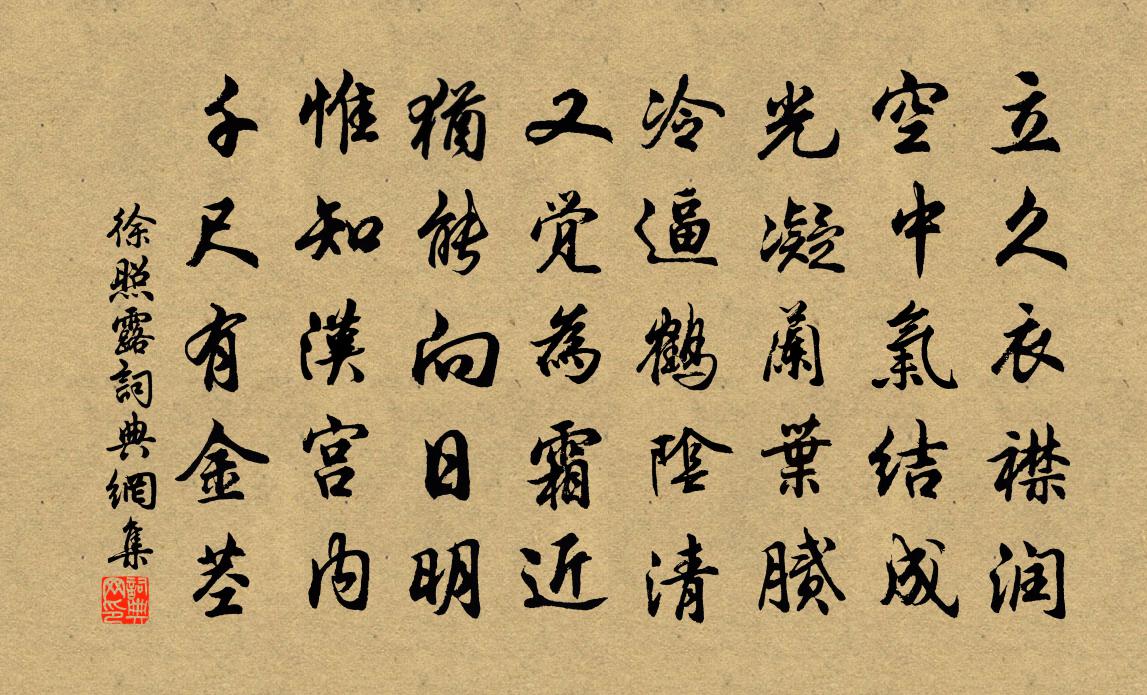 立久衣襟润
空中氣結成
光凝蘭葉膩
冷逼鶴陰清
又觉為霜近
猶能向日明
惟知漢宫内
千尺有金茎
徐照露詞典網集
詞典网印